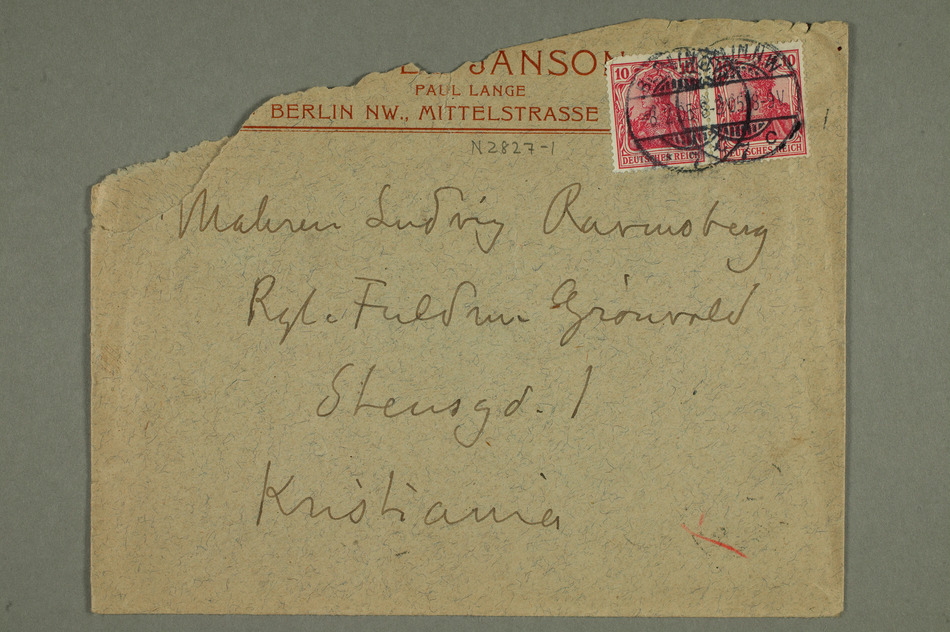 JANSON
PAUL LANGE
BERLIN NW., MITTELSTRASSE
N 2827-1
10 10
DEUTSCHES REICH DEUTSCHES REICH
Maleren Ludvig Ravensberg
Fuldm. Grönvold
Stensgd. 1
Kristiania